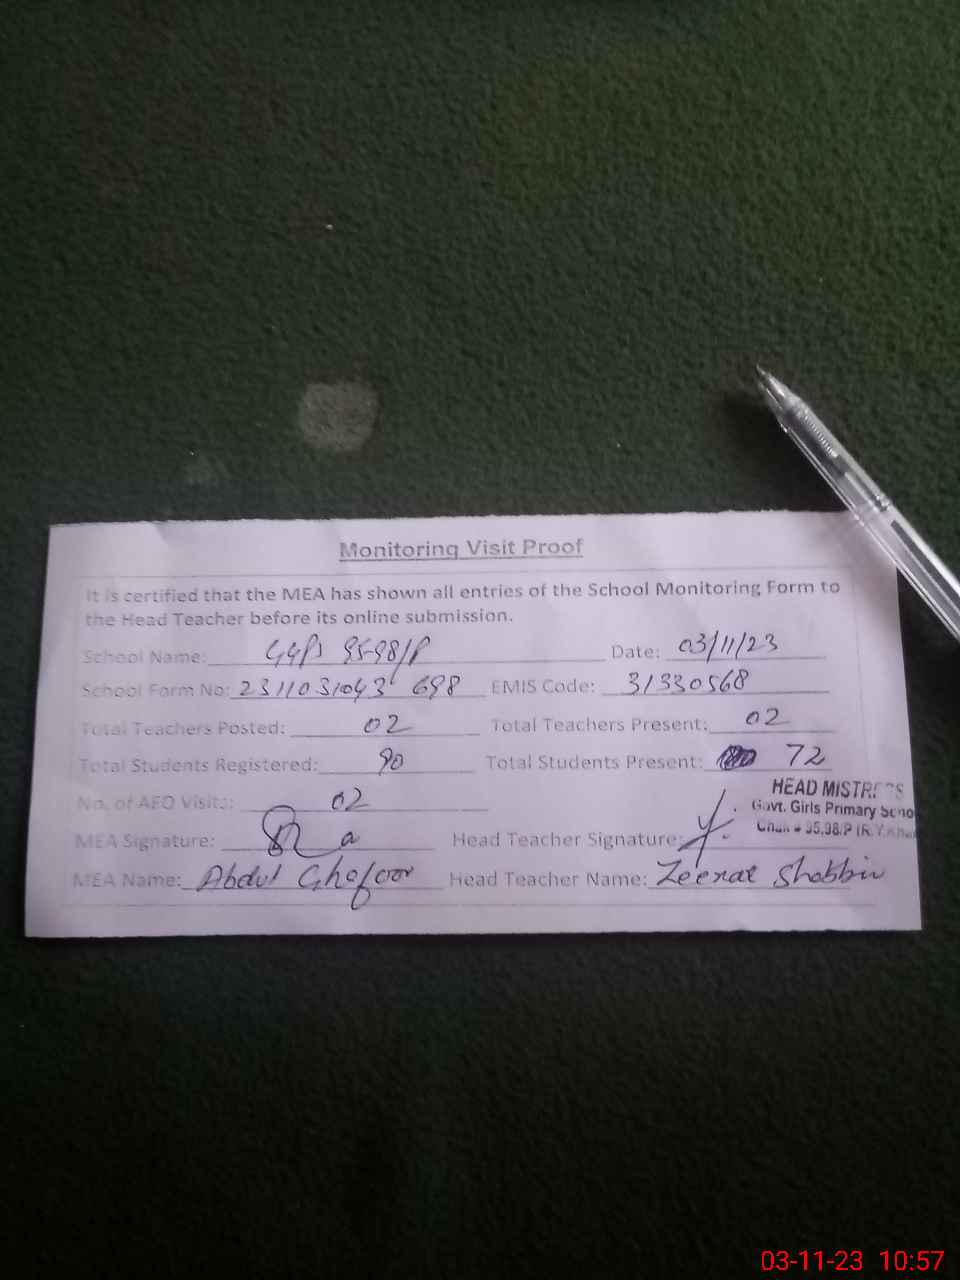 Monitoring Visit Proof
It is certified that the MEA has shown all entries of the School Monitoring Form to
the Head Teacher before its online submission.
School Name: GGPS 95-98/P Date: 03/11/23
School Form No: 2311031043 698 EMIS Code: 31330568
Total Teachers Posted: 02 Total Teachers Present: 02
Total Students Registered: 90 Total Students Present: 72
No. of AEO Visits: 02
HEAD MISTRESS
Govt. Girls Primary Schoo
Chak # 95,98/P (R.Y.Khan
MEA Signature: Head Teacher Signature:
MEA Name: Abdul Ghafoor Head Teacher Name: Zeenat Shabbir
03-11-23 10:57